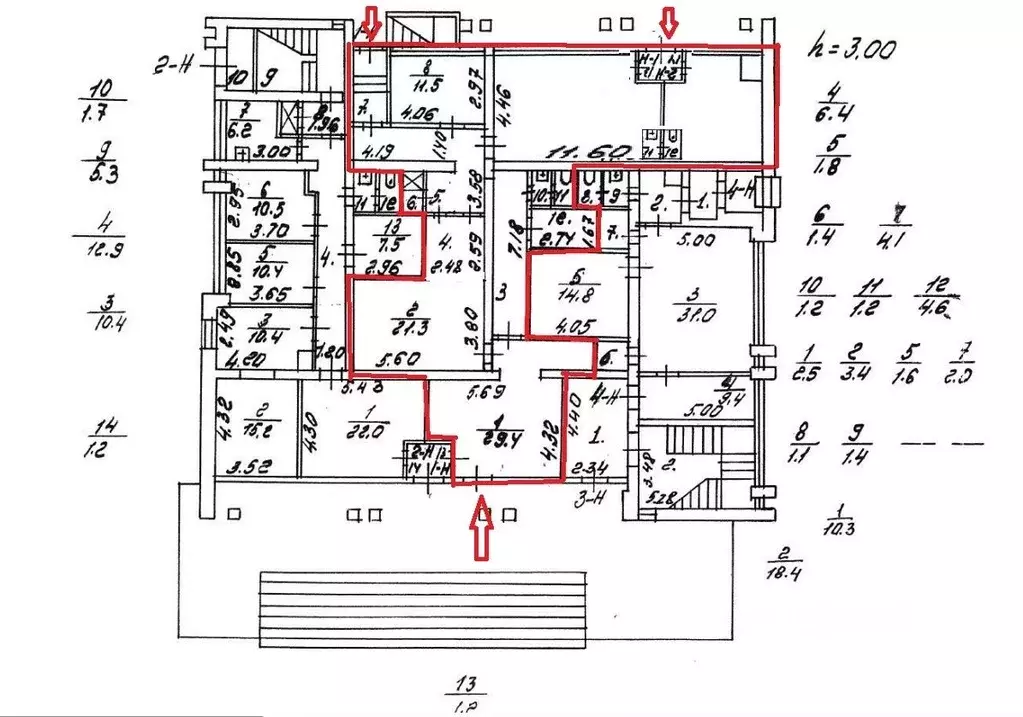 h = 3.00
2-Н
10
1.7
9
5.3
4
12.9
3
10.4
14
1.2
4
6.4
5
1.8
6
1.4
7
4.1
10
1.2
11
1.2
12
4.6
1
2.5
2
3.4
5
1.6
7
2.0
8
1.1
9
1.4
1
10.3
2
18.4
13
1.2
10
9
8
1.96
7
6.2
3.00
6
10.5
2.95
3.70
5
10.4
2.85
3.65
3
10.4
2.49
4.20
1.20
4.
2
15.2
4.32
3.52
1
22.0
4.30
5.43
2-Н
14
1-Н
7.
8
11.5
2.97
4.06
4.19
1.40
4.46
11.60
11
12
6.
5.
3.58
13
7.5
2.96
4.
2.48
2.59
2
21.3
3.80
5.60
3
7.18
5.69
1
29.4
4.32
10.
11
8.
9
12.
2.74
1.67
7.
5
14.8
4.05
6.
4-Н
4.40
1.
2.34
3-Н
2.
1.
4-Н
5.00
3
31.0
4
9.4
5.00
2.
3.48
5.28